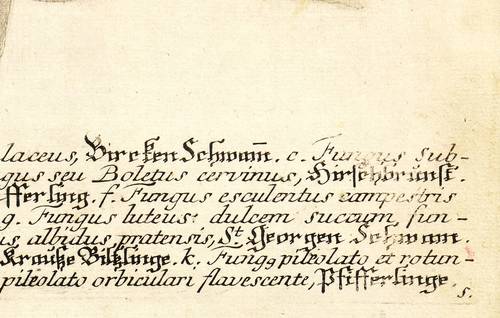 laceus, Bircken Schwam̄. c. Fungus sub-
gus seu Boletus cervinus, Hirschbrunst.
fferling. f. Fungus esculentus campestris
g. Fungus luteus: dulcem succum fun-
us albidus pratensis, St. Georgen Schwam.
Krautze Biltzlinge. k. Fungq pileolato et rotun-
pileolato orbiculari flavescente, Pfifferlinge.
s.